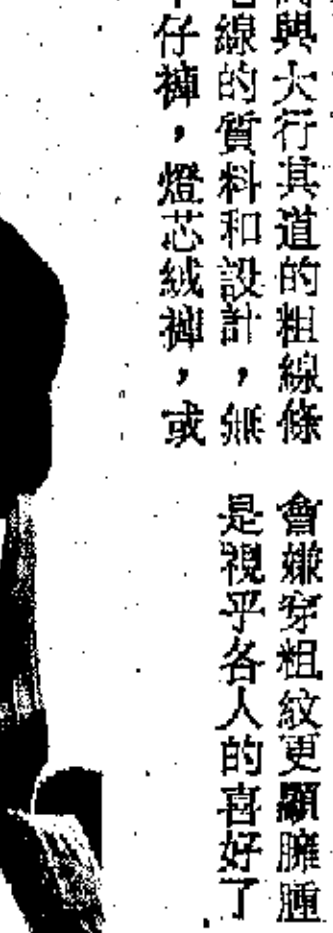 興大行其道的粗線條
線的質料和設計，無
仔褲，燈芯絨褲，或
會嫌穿粗紋更顯臃腫
是視乎各人的喜好了